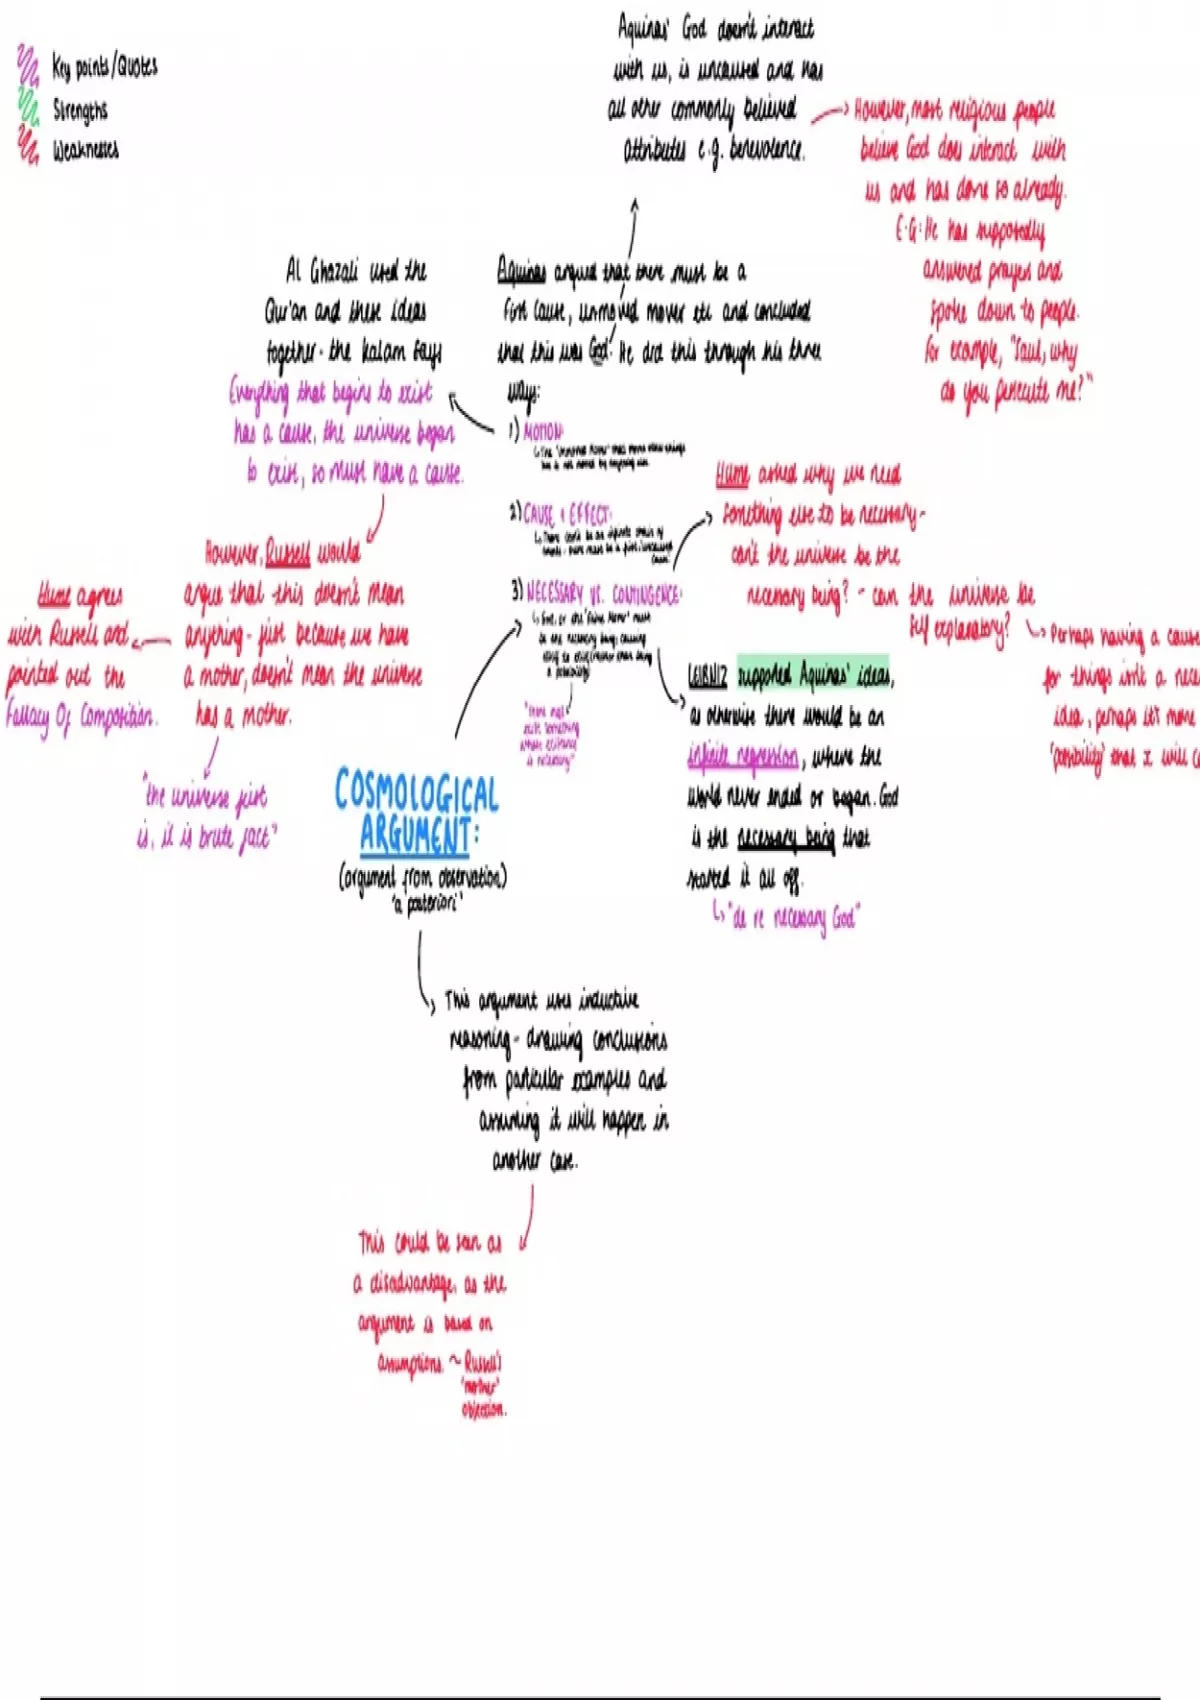 Key points/Quotes
Strengths
Weaknesses
Aquinas' God doesn't interact
with us, is uncaused and has
all other commonly believed
attributes e.g. benevolence.
However, most religious people
believe God does interact with
us and has done so already.
E.G: He has supposedly
answered prayers and
spoke down to people.
For example, "Saul, why
do you persecute me?"
Al Ghazali used the
Qur'an and these ideas
together - the kalam says
Everything that begins to exist
has a cause, the universe began
to exist, so must have a cause.
Aquinas argued that there must be a
First Cause, unmoved mover etc and concluded
that this was God. He did this through his three
ways:
1) MOTION:
2) CAUSE & EFFECT:
3) NECESSARY VS. CONTINGENCE:
"there must
exist something
whose existence
is necessary"
Hume asked why we need
something else to be necessary -
can't the universe be the
necessary being? - can the universe be
self explanatory?
Perhaps having a cause
for things isn't a nece
idea, perhaps it's more
'possibility' that I will c
However, Russell would
argue that this doesn't mean
anything - just because we have
a mother, doesn't mean the universe
has a mother.
Hume agrees
with Russell and
pointed out the
Fallacy Of Composition.
"the universe just
is, it is brute fact"
LEIBNIZ supported Aquinas' ideas,
as otherwise there would be an
infinite regression, where the
world never ended or began. God
is the necessary being that
started it all off.
"de re necessary God"
COSMOLOGICAL
ARGUMENT:
(argument from observation)
"a posteriori"
This argument uses inductive
reasoning - drawing conclusions
from particular examples and
assuming it will happen in
another case.
This could be seen as
a disadvantage, as the
argument is based on
assumptions. ~ Russell's
'mother'
objection.